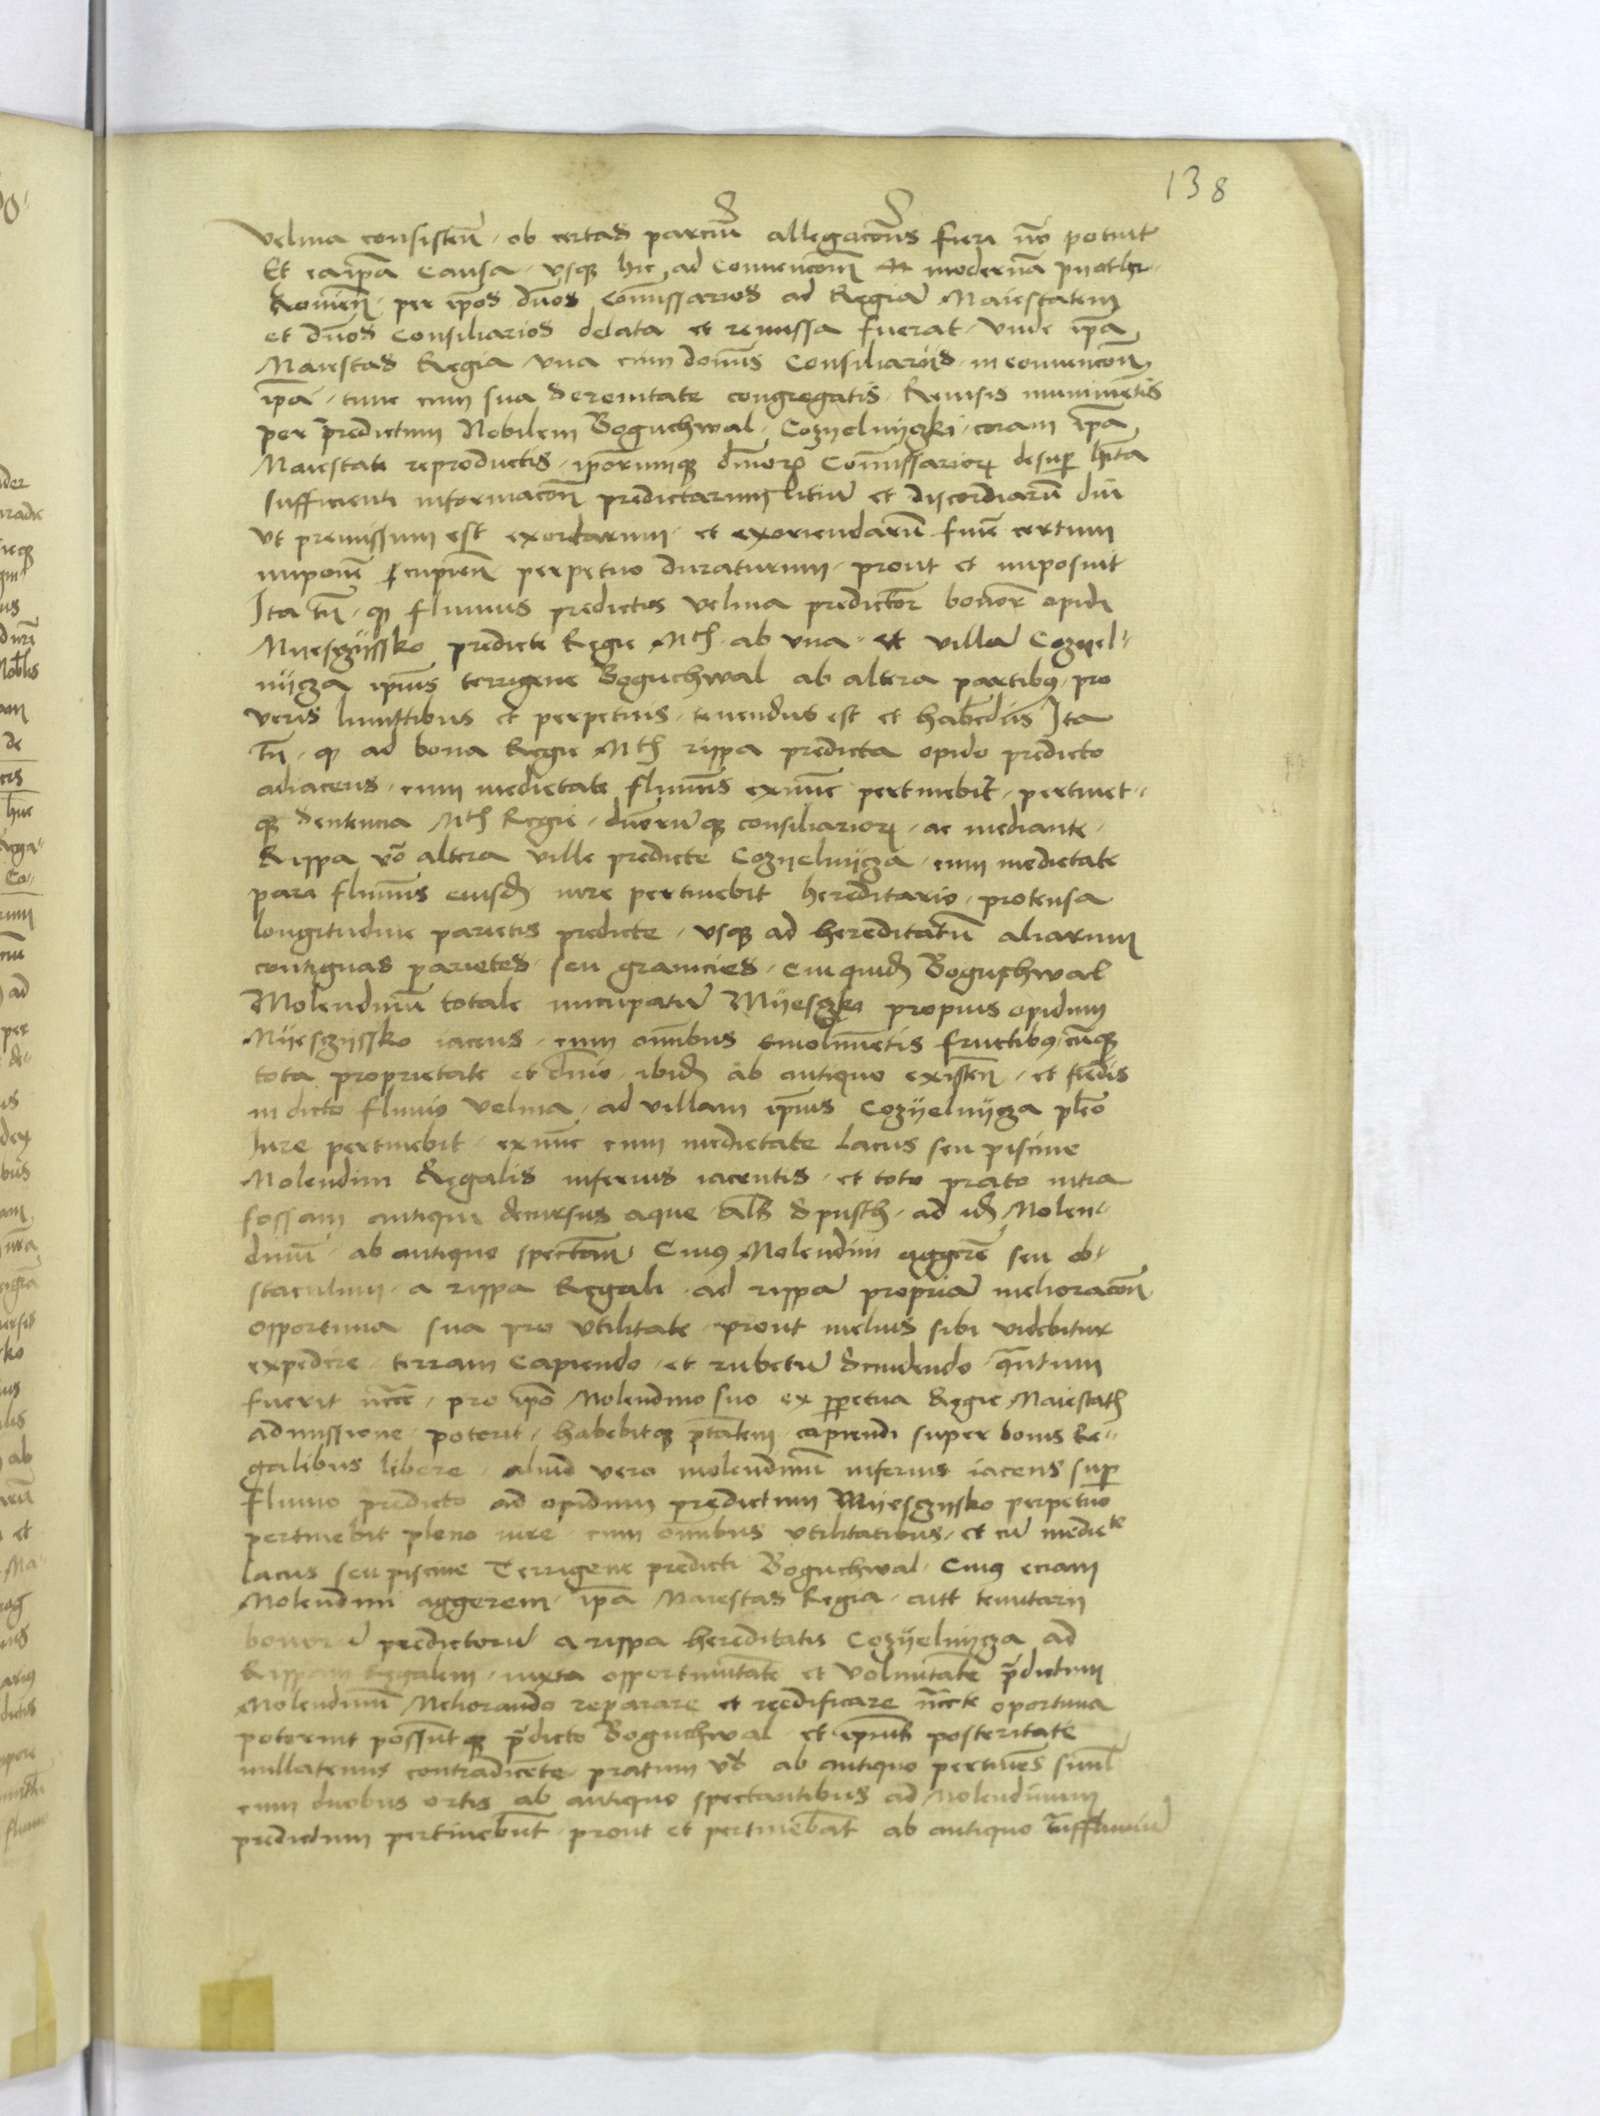 138
velna consisten ob certas parcium allegacones fieri nō potuit
Et ea ipā Causa usque hic ad Convenconem modernā pyother
koviēn per ipos dnos Commissarios ad Regiam Maiestatem
et dnos Consiliarios delata et remissa fuerat Unde ipā
Maiestas Regia una cum domis Consiliariis in convencone
ipā tunc cum sua Serenitate congregatis Revisis munimentis
per predictum Nobilem Boguchwal Cozyelnyczki coram ipā
Maiestate reproductis ipōrumque dnorū Commissariorū desup hita
sufficienti informacone predictarum litium et discordiarū diu
ut premissum est exortarum et exoriendarū finē certum
imponē cupien perpetuo duraturum prout et imposuit
Ita tn qs fluvius predictus Velna predictor bonor opidi
Myesczyssko predicte Regie Mth ab una et villa Cozyel-
nycza ipius terrigene Boguchwal ab altera partibus pro
veris limitibus et perpetuis tenendus est et habēdus Ita
tn qs ad bona Regie Mth rippa predicta opido predicto
adiacens cum medietate fluminis exnunc pertinebit pertinet-
que Sentencia Mth Regie dnorūque consiliariorū ac mediante
Rippa vō altera ville predicte Cozyelnycza cum medietate
pari fluminis eiusdē iure pertinebit hereditario protensa
longitudine parietis predicte usque ad hereditatum aliarum
contiguas parietes seu granicies Cui quidē Boguchwal
Molendinū totale nucupatū Myeszko propius opidum
Myesczyssko iacens cum omnibus emolumētis fructibus cūque
tota proprietate et dnio ibidē ab antiquo existen et
in dicto fluvio Velna ad villam ipius Cozyelnycza plēo
Iure pertinebit exnunc cum medietate lacus seu piscine
Molendini Regalis inferius iacentis et toto prato intra
fossam antiqui decursus aque als Spusth ad id Molen-
dinū ab antiquo spectan Cuius Molendini aggerē seu ob-
staculum a rippa Regali ad rippā propriā melioracone
opportuna sua pro utilitate prout melius sibi videbitur
expedire terram Capiendo et rubetū scindendo quantum
fuerit necē pro ipō Molendino suo ex perpetua Regie Maiestath
admissione poterit habebitque ptātem capiendi super bonis Re-
galibus libere aliud vero molendinū inferius iacens sup
fluvio predicto ad opidum predictum Myesczyssko perpetuo
pertinebit pleno iure cum omnibus utilitatibus et cū medie te
lacus seu piscine Terrigene predicti Boguchwal Cuius eciam
Molendini aggerem ipā Maiestas Regia autt tenutarii
bonorū predictorū a rippa hereditatis Cozyelnycza ad
Rippam Regalem iuxta opportunitatē et voluntatē predictum
Molendinū Meliorando reparare et reedificare oportuna
poterint possuntque predicto Boguchwal et ipius posteritate
nullatenus contradicēte pratum vō ab antiquo pertinens simul
cum duobus ortis ab antiquo spectantibus ad Molendinum
predictum pertinebūt prout et pertinebāt ab antiquo